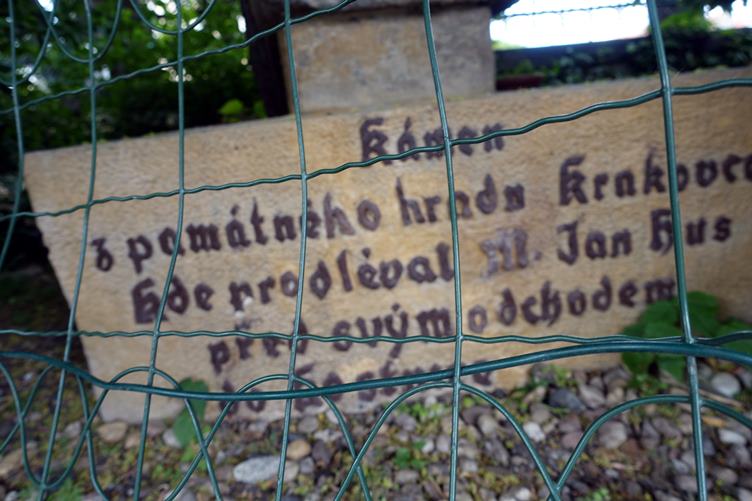 Kámen
z památného hradu Krakovce
kde prodléval M. Jan Hus
před svým odchodem
do Kostnice